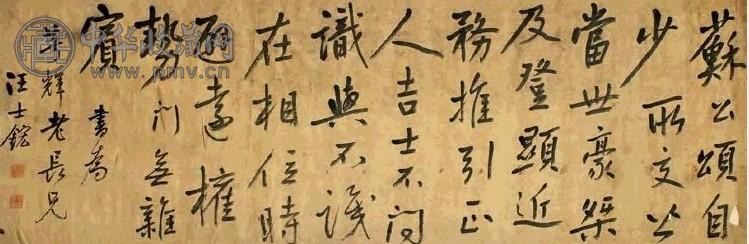 蘇公頌自
少所交皆
當世豪桀
及登顯近
務推引正
人吉士不問
識與不識
在相位時
避遠權
勢門無雜
賓
書為
輝老長兄
汪士鋐
中华收藏网
www.pmv.cn